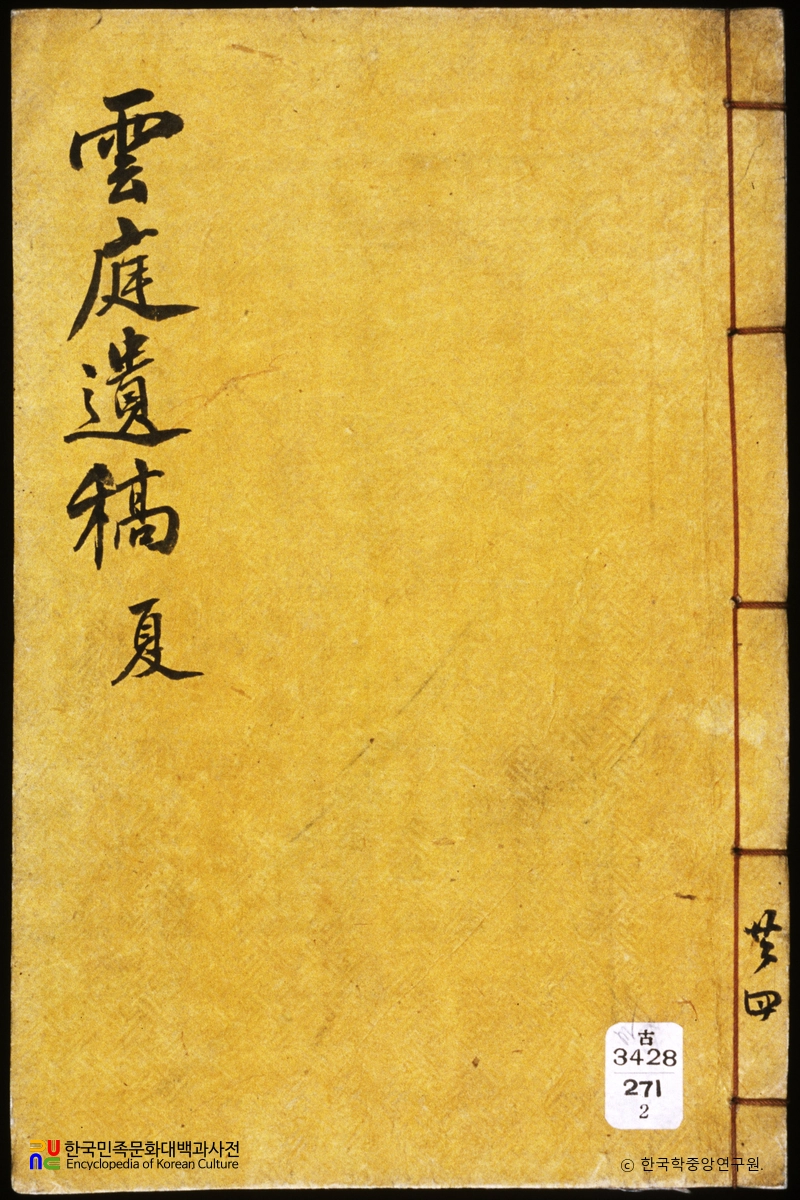 雲庭遺稿 夏
共四
古
3428
271
2
한국민족문화대백과사전
Encyclopedia of Korean Culture
© 한국학중앙연구원.